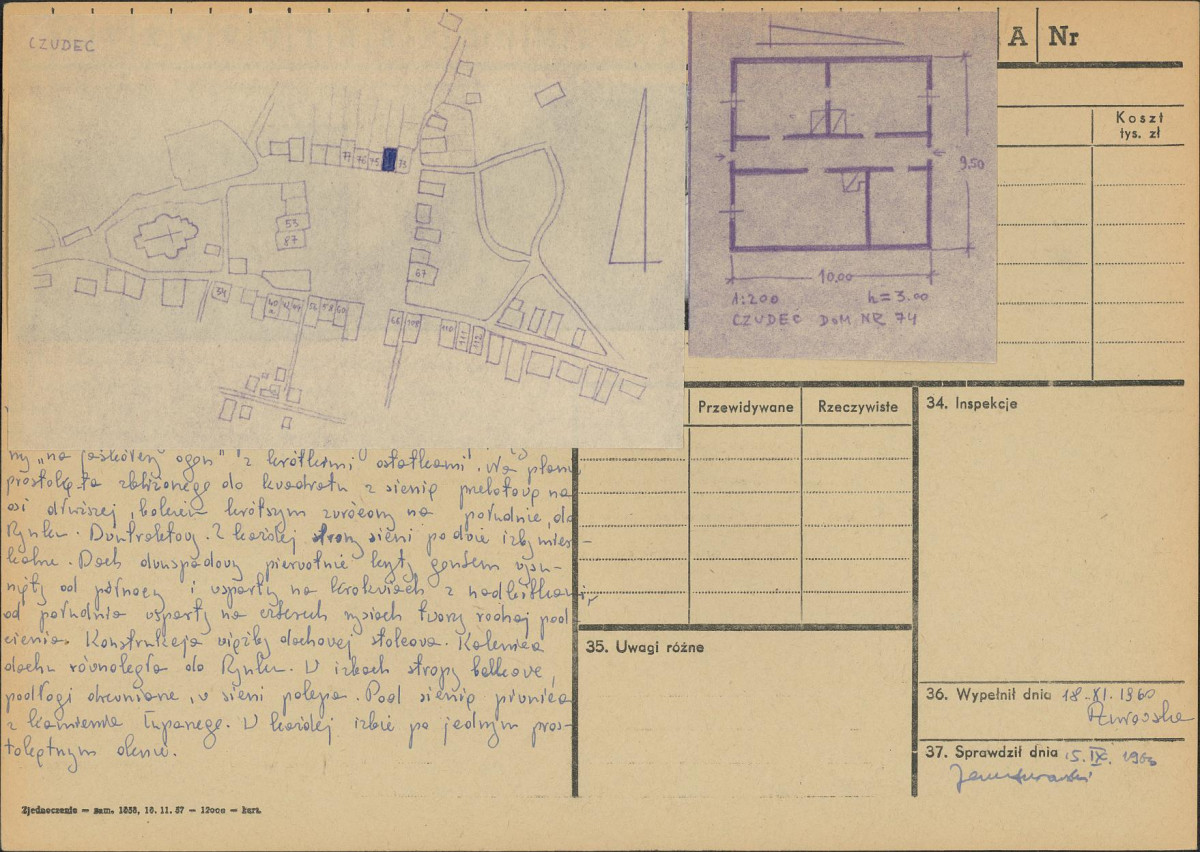 CZUDEC
A Nr
Koszt
tys. zł
77 76 75 73
53
87
67
34
40a 42 44 56 58 60
66 108 110 111 112
9,50
10,00
1:200 h = 3.00
CZUDEC DOM NR 74
Przewidywane Rzeczywiste
34. Inspekcje
ny „na jaskółczy ogon" z krótkimi ostatkami. Na planie
prostokąta zbliżonego do kwadratu z sienią przelotową na
osi dłuższej, bokiem krótszym zwrócony na południe, do
Rynku. Dwutraktowy. Z każdej strony sieni po dwie izby miesz-
kalne. Dach dwuspadowy pierwotnie kryty gontem wysu-
nięty od północy i wsparty na krokwiach z
od południa wsparty na czterech rysiach tworzy rodzaj pod
cienia. Konstrukcja więźby dachowej stolcowa. Kalenica
dachu równoległa do Rynku. W izbach stropy belkowe,
podłogi drewniane, w sieni polepa. Pod sienią piwnica
z kamienia łupanego. W każdej izbie po jednym pros-
tokątnym oknie.
35. Uwagi różne
36. Wypełnił dnia 18.XI.1960
37. Sprawdził dnia 15.IX.1960
Zjednoczenie — zam. 1658, 16. 11. 57 — 12000 — kart.